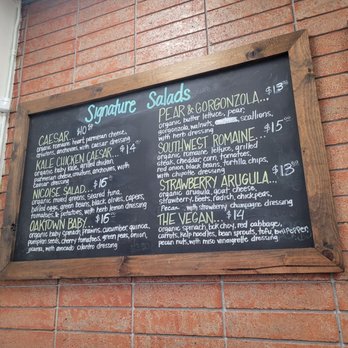 Signature Salads
CAESAR...
organic romaine heart, parmesan cheese,
croutons, anchovies, with caesar dressing
KALE CHICKEN CAESAR... $14
organic baby kale, grilled chicken,
parmesan cheese, croutons, anchovies, with
caesar dressing
NICOISE SALAD... $15
organic mixed greens, seared tuna,
boiled eggs, green beans, black olives, capers,
tomatoes & potatoes, with herb lemon dressing
OAKTOWN BABY... $15
organic baby spinach, prawns, cucumber, quinoa,
pumpkin seeds, cherry tomatoes, green peas, onion,
with avocado cilantro dressing
PEAR & GORGONZOLA...
organic butter lettuce, pear,
gorgonzola, walnuts, scallions,
with herb dressing
SOUTHWEST ROMAINE... $15
organic romaine lettuce, grilled
steak, cheddar, corn, tomatoes,
red onion, black beans, tortilla chips,
with chipotle dressing
STRAWBERRY ARUGULA... $13
organic arugula, goat cheese,
strawberry, beets, radish, chickpeas,
Pecan with strawberry champagne dressing
THE VEGAN... $14
organic spinach, bok choy, red cabbage,
carrots, kelp noodles, bean sprouts, tofu,
pecan nuts, with miso vinaigrette dressing